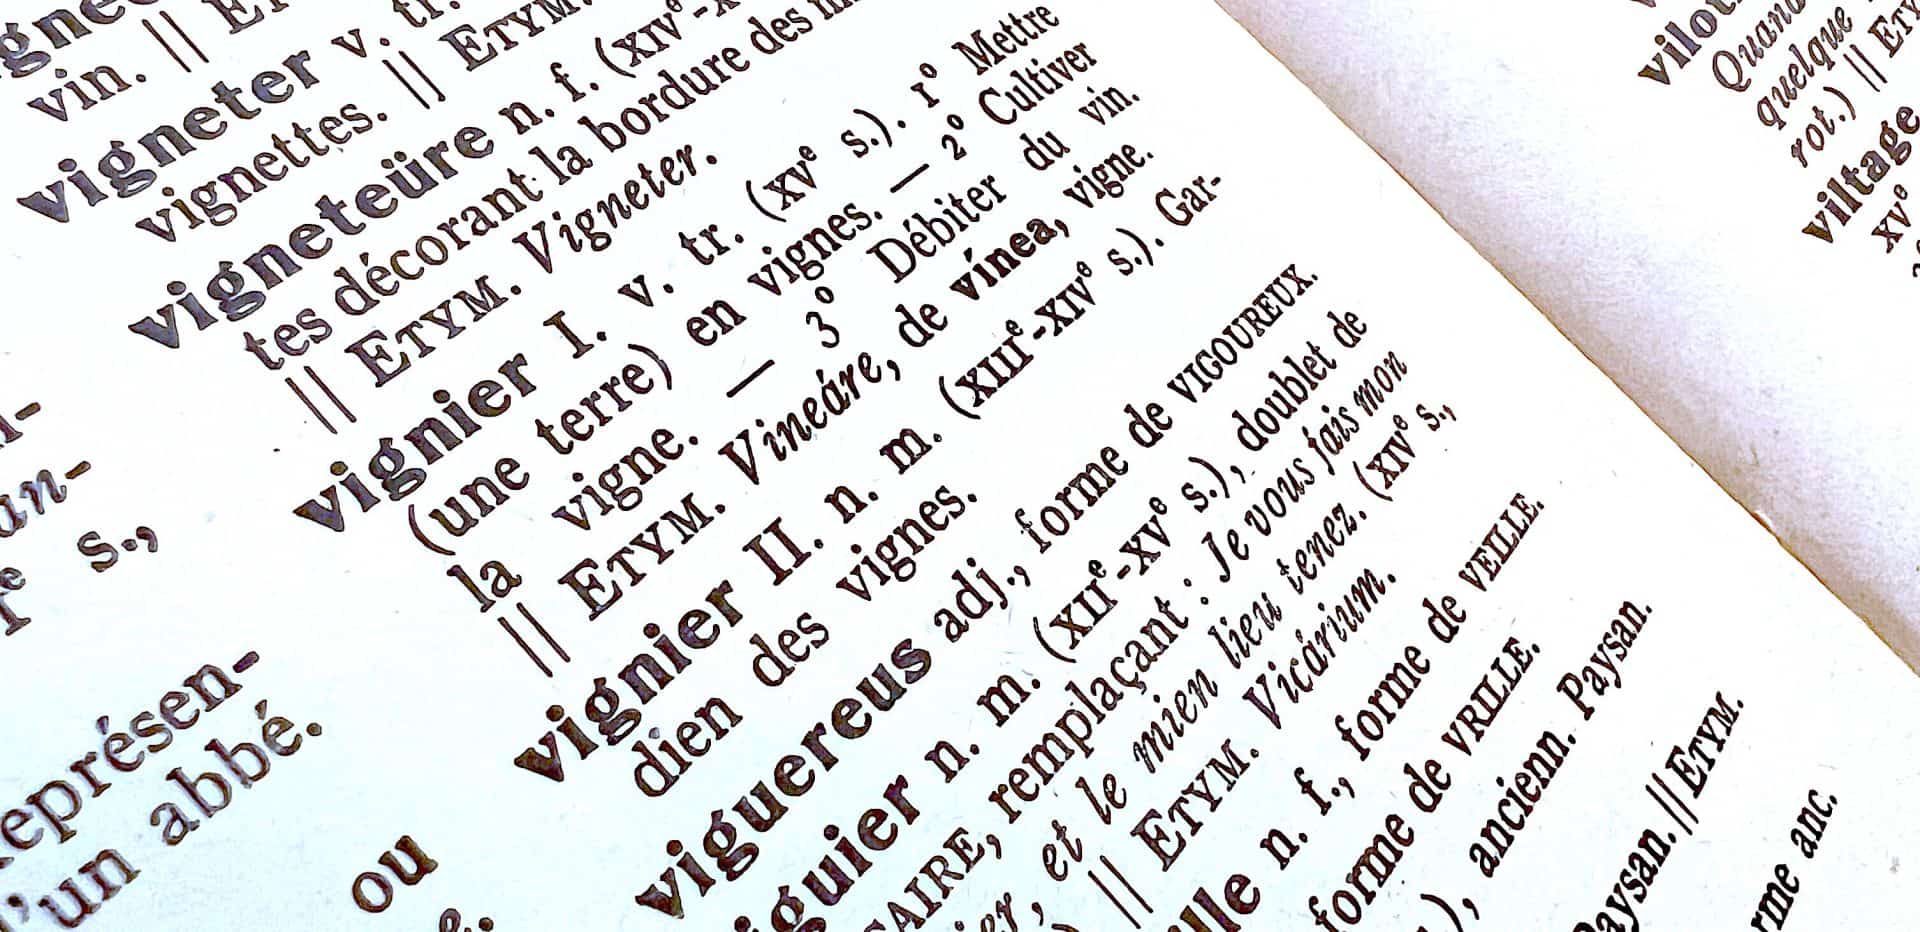 vin. ||
vigneter v. tr.
vignettes. || ETYM.
vigneteüre n. f. (XIVᵉ-
tes décorant la bordure des
|| ETYM. Vigneter.
vignier I. v. tr. (XVᵉ s.). 1º Mettre
(une terre) en vignes. — 2º Cultiver
la vigne. — 3º Débiter du vin.
|| ETYM. Vineáre, de vínea, vigne.
vignier II. n. m. (XIIIᵉ-XIVᵉ s.). Gar-
dien des vignes.
viguereus adj., forme de VIGOUREUX.
iguier n. m. (XIIᵉ-XVᵉ s.), doublet de
CAIRE, remplaçant : Je vous fais mon
ier, et le mien lieu tenez. (XIVᵉ s.,
) || ETYM. Vicárium.
ille n. f., forme de VEILLE.
forme de VRILLE.
), ancienn. Paysan.
Paysan. || ETYM.
rme anc.
an-
s.,
eprésen-
l'un abbé.
ou
e.
Quand
quelque
rot.) ||
viltage
XVᵉ